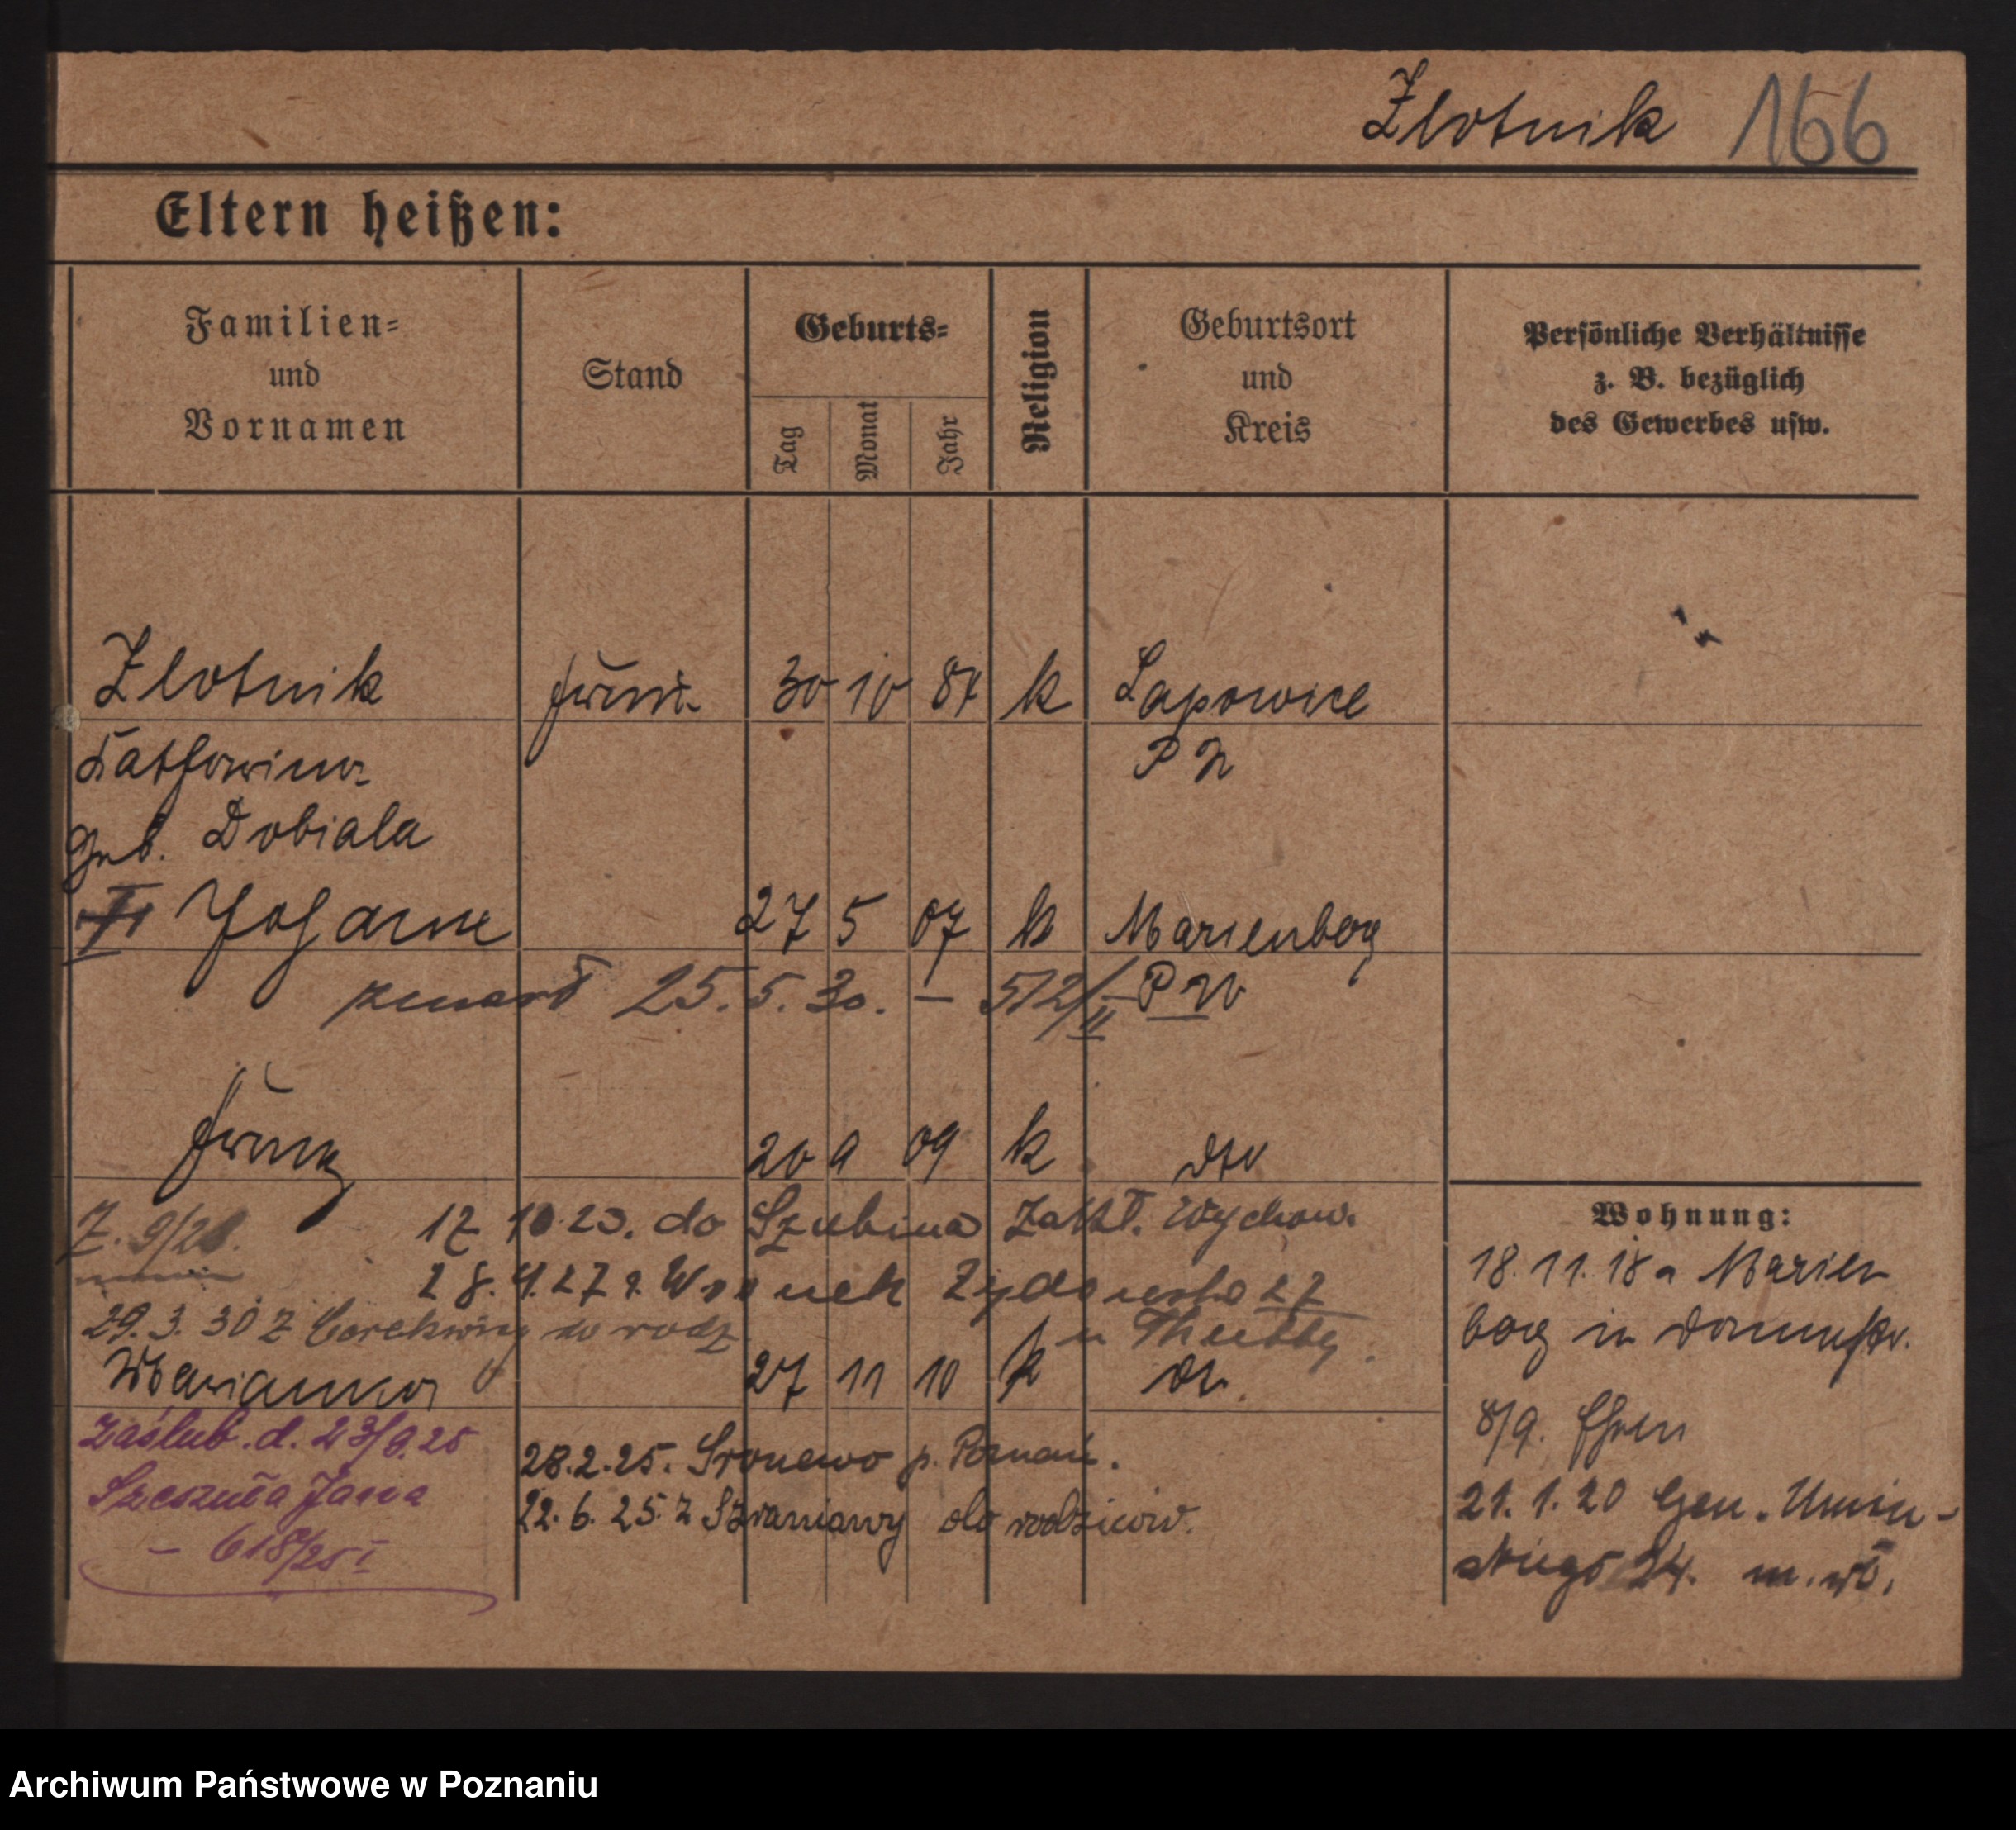 Zlotnik 166
Eltern heißen:
Familien=
und
Vornamen
Stand
Geburts=
Tag
Monat
Jahr
Religion
Geburtsort
und
Kreis
Persönliche Verhältnisse
z. B. bezüglich
des Gewerbes usw.
Zlotnik 30 10 87 k Lapowice
Katharina P
geb. Dobiala
Johann 27 5 07 k Marienberg
zmarł 25. 5. 30. – 572/II P W
Franz 20 9 09 k dto
17 10 23. do Szubina Zakł. Wychow.
28. 4. 27 z. Wronek 27
29. 3. 30 z do rodz.
Marianna 27 11 10 k dto.
Zaślub. d. 23/9.25
Jana
– 618/25 I
28.2.25. p. Poznań.
22. 6. 25. z do rodziców.
Wohnung:
18. 11. 18 a Marien
berg in
8/9.
21. 1. 20 Gen. Umiń-
skiego 24. m.
Archiwum Państwowe w Poznaniu